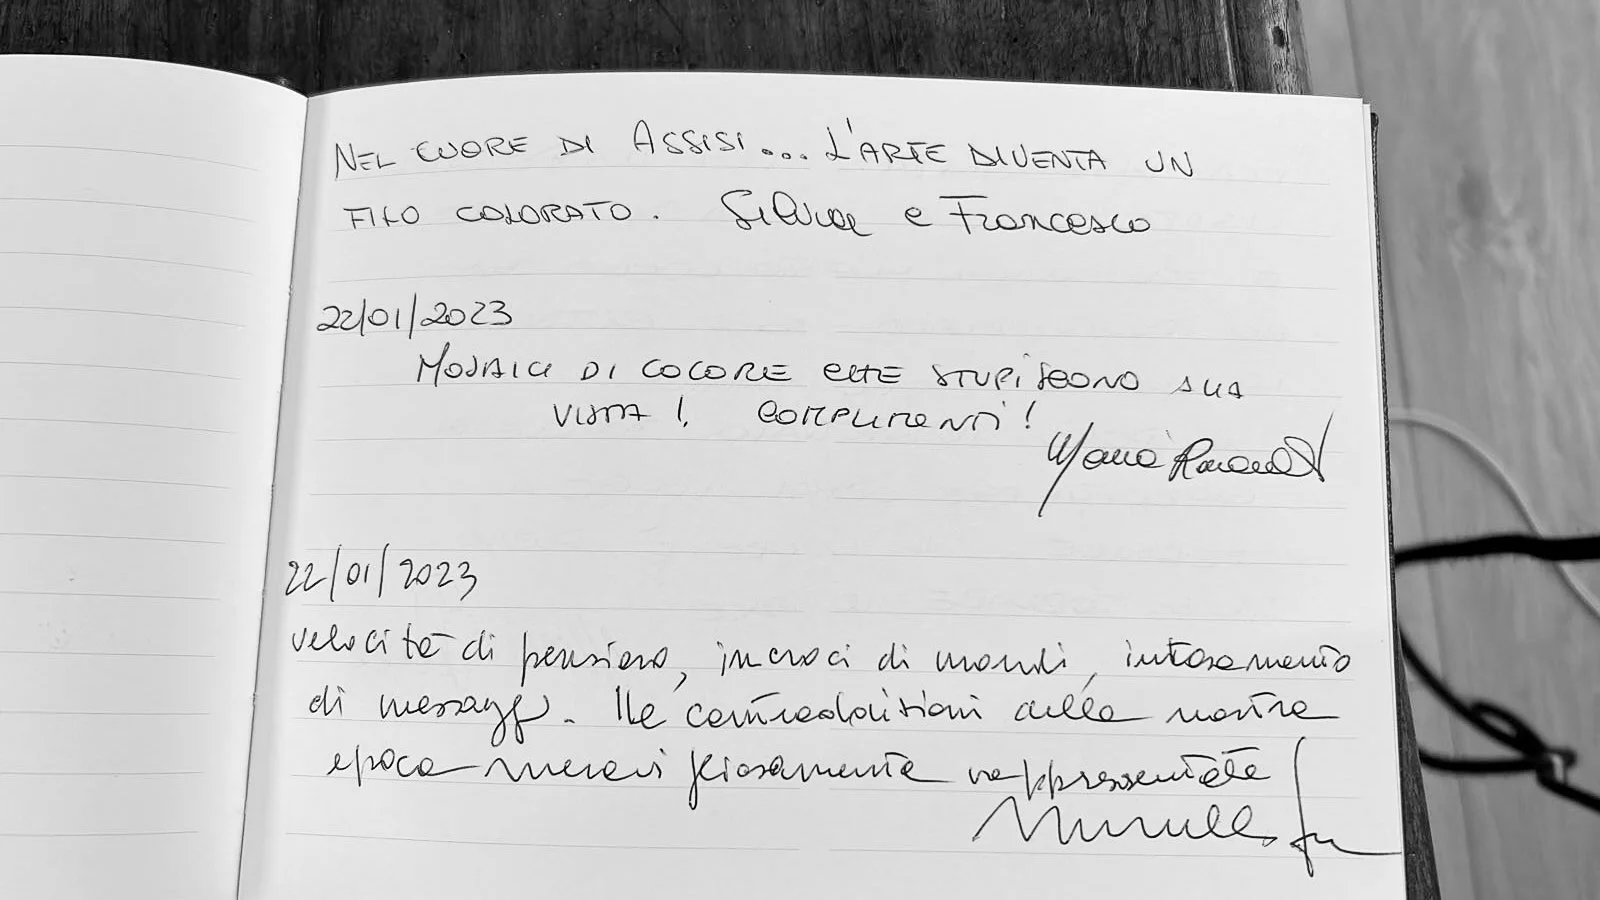 NEL CUORE DI ASSISI... L'ARTE DIVENTA UN
FILO COLORATO. Silvia e Francesco
22/01/2023
MOSAICI DI COLORE CHE STUPISCONO ALLA
VISTA! COMPLIMENTI!
Maria
22/01/2023
velocità di pensiero, incroci di mondi, intasamento
di messaggi. Le contraddizioni della nostra
epoca meravigliosamente rappresentate